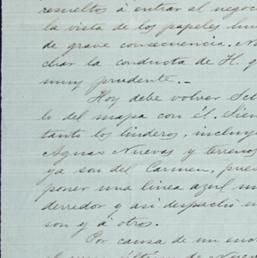 resueltos á entrar al negoci
la vista de los papeles hu
de grave consecuencia. No
char la conducta de H. q
muy prudente. —
Hoy debe volver Sc
lo del mapa con él. Sien
tanto los linderos, incluy
Aguas Nuevas y terreno
ya son del Carmen, pue
poner una linea azul
derredor y asi despacio
son y á otros.
Por causa de un